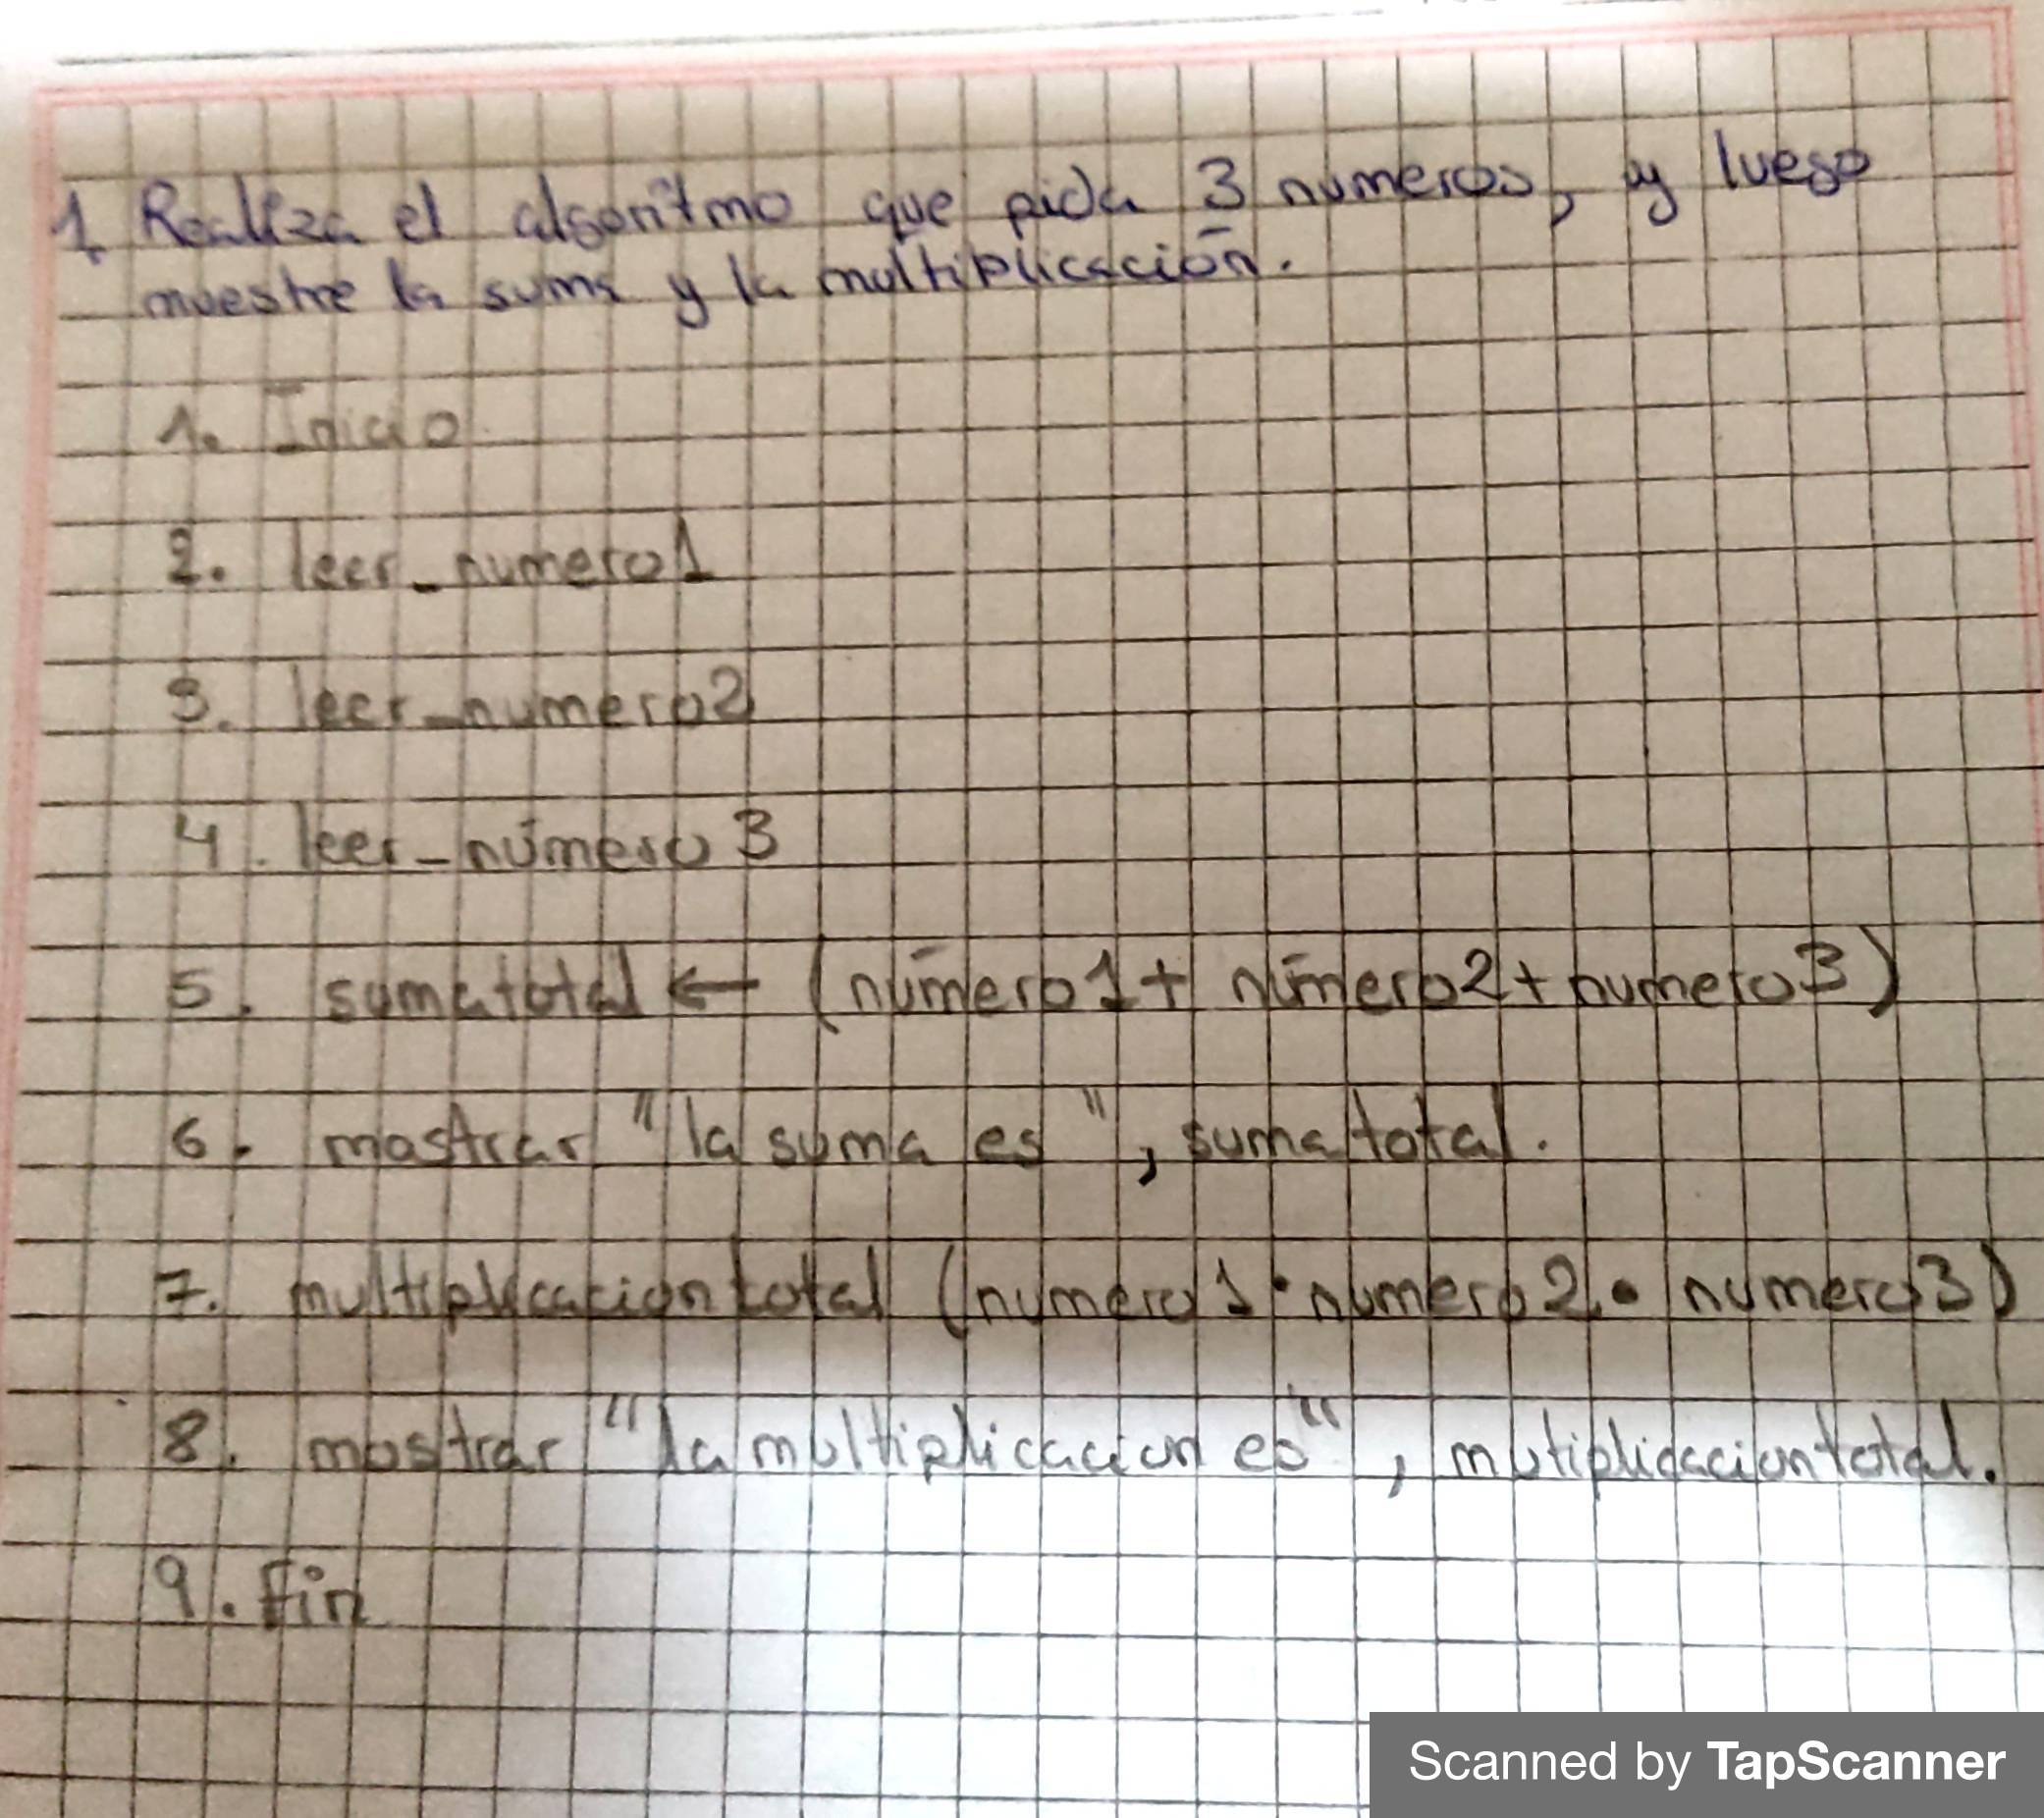 1. Realiza el algoritmo que pida 3 numeros, y luego
muestre la suma y la multiplicación.
1. Inicio
2. leer_numero1
3. leer_numero2
4. leer_número 3
5. sumatotal ← (número1 + número2 + numero3)
6. mostrar "la suma es", sumatotal.
7. multiplicaciontotal (numero1 • numero2 • numero3)
8. mostrar "la multiplicacion es", mutiplicaciontotal.
9. fin
Scanned by TapScanner